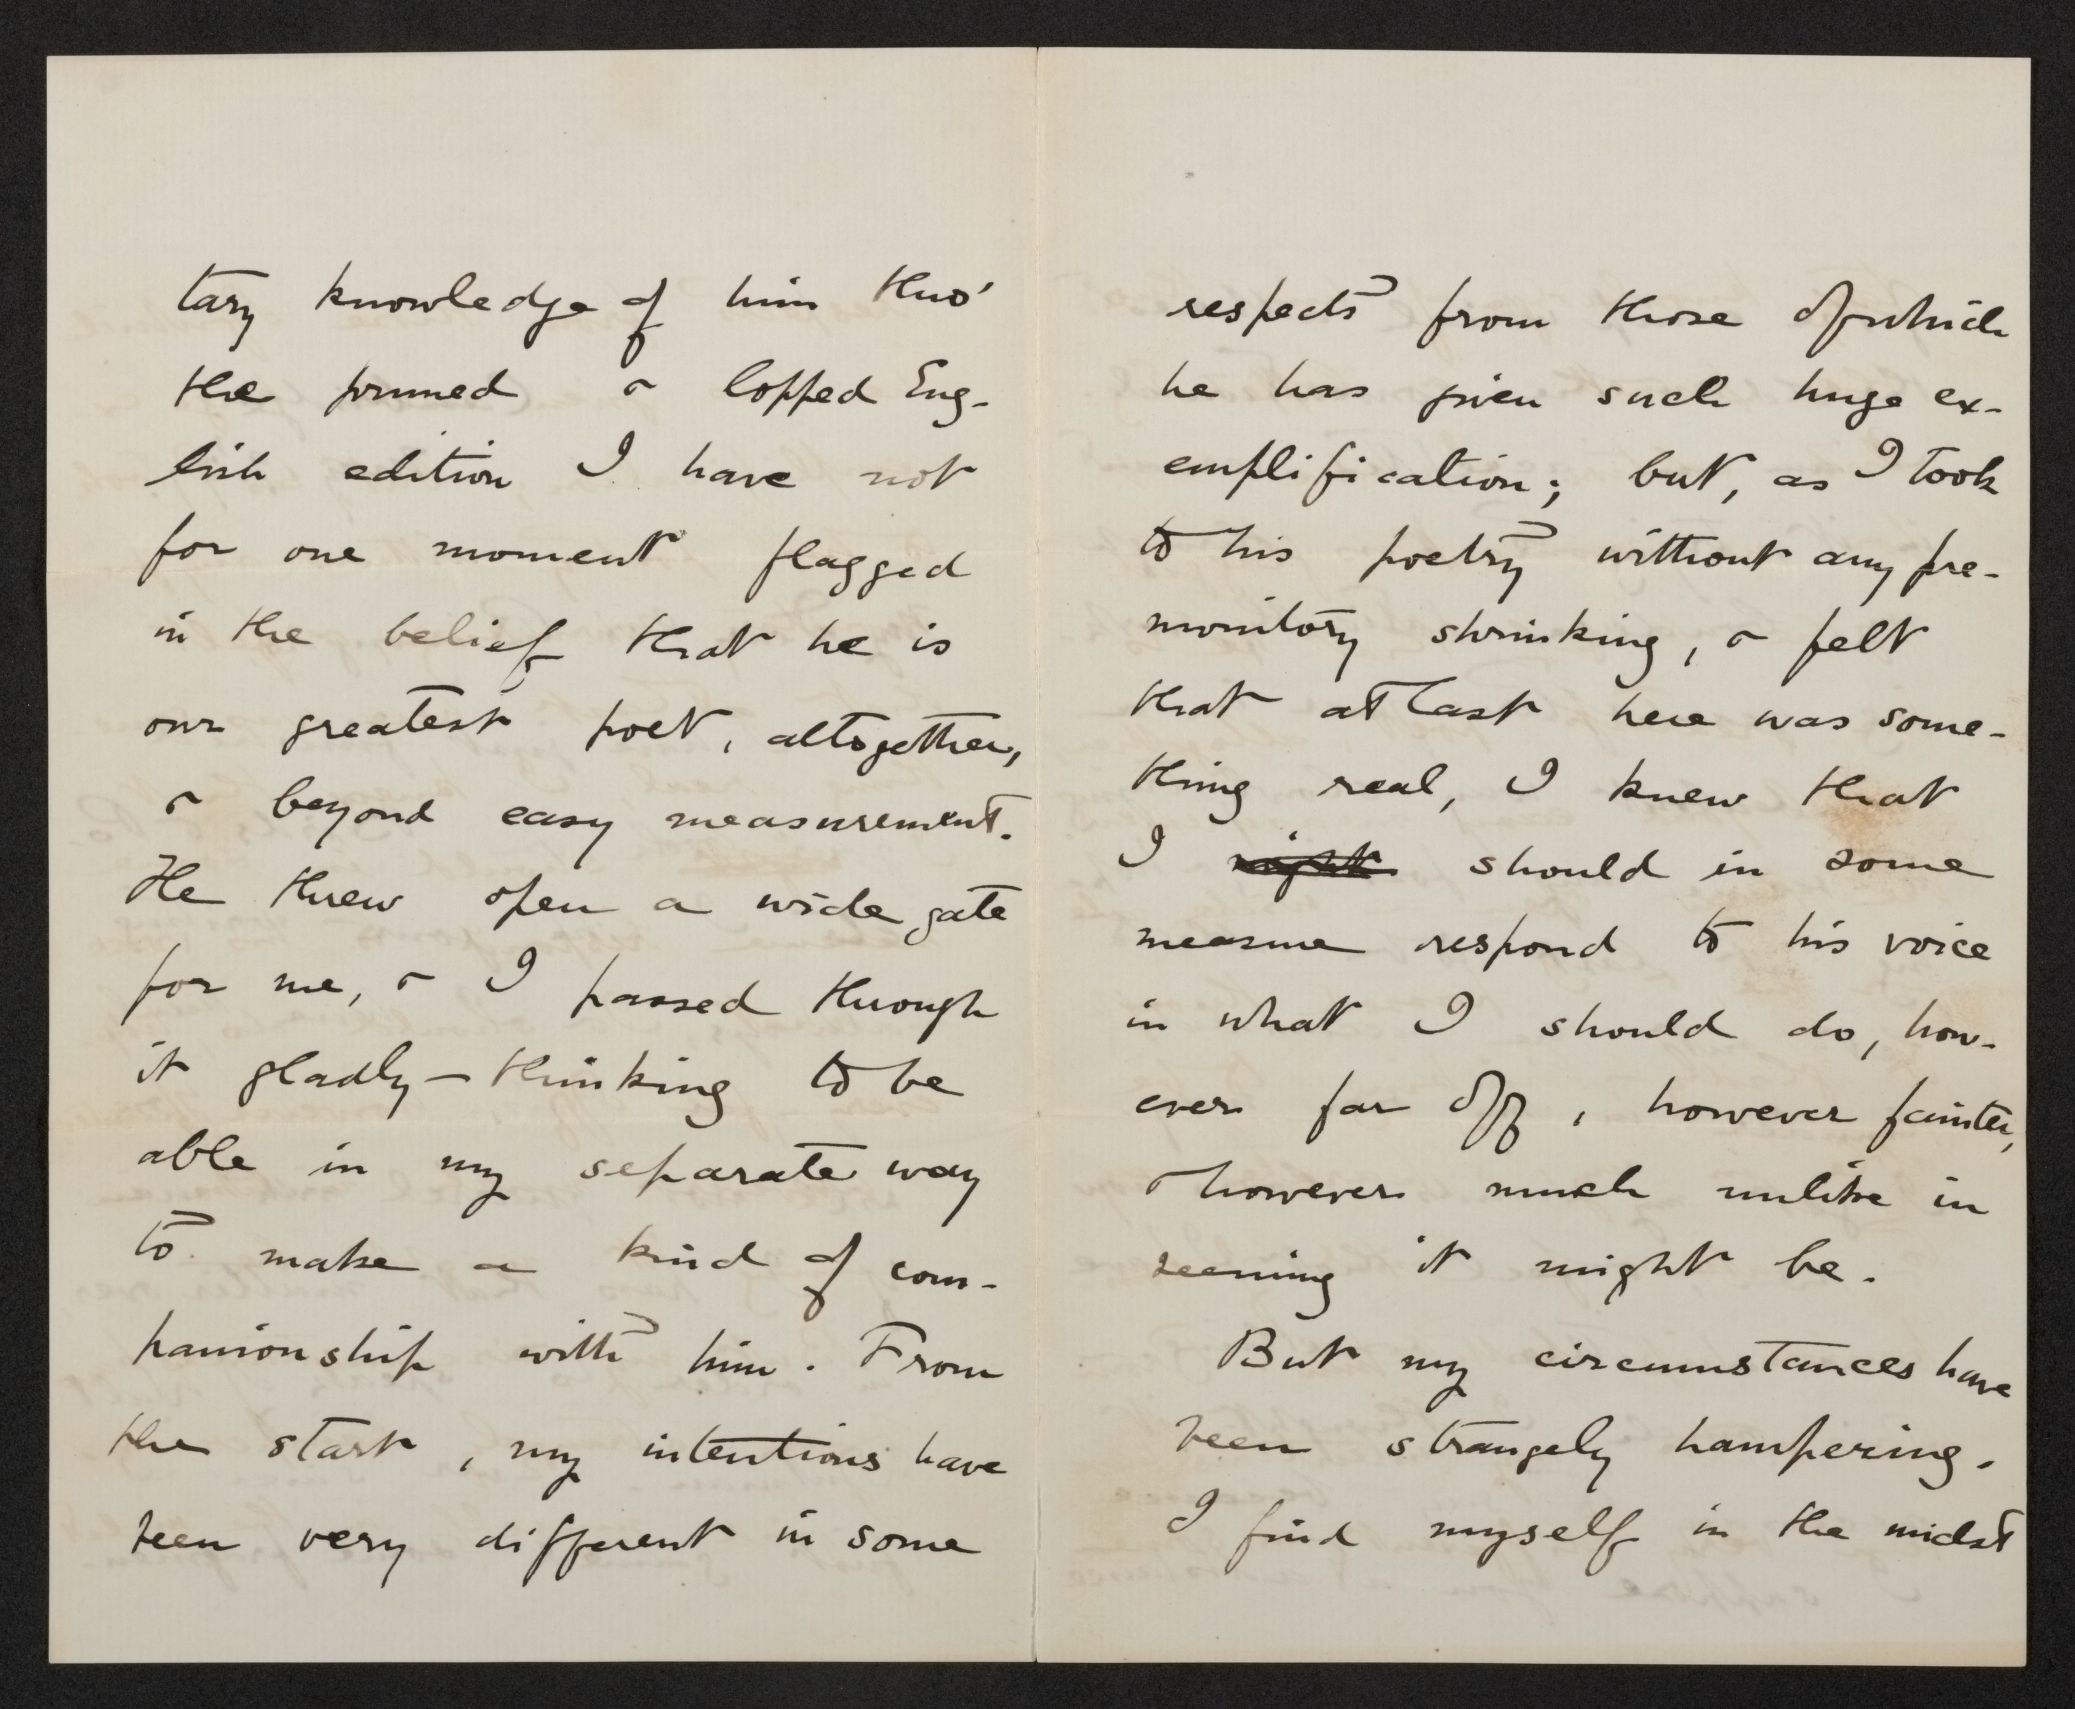 tary knowledge of him thro'
the pruned & lopped Eng-
lish edition I have not
for one moment flagged
in the belief that he is
our greatest poet, altogether,
& beyond easy measurement.
He threw open a wide gate
for me, & I passed through
it gladly — thinking to be
able in my separate way
to make a kind of com-
panionship with him. From
the start, my intentions have
been very different in some
respects from those of which
he has given such huge ex-
emplification; but, as I took
to his poetry without any pre-
monitory shrinking, & felt
that at last here was some-
thing real, I knew that
I might should in some
measure respond to his voice
in what I should do, how-
ever far off, however fainter,
& however much unlike in
seeming it might be.
But my circumstances have
been strangely hampering.
I find myself in the midst